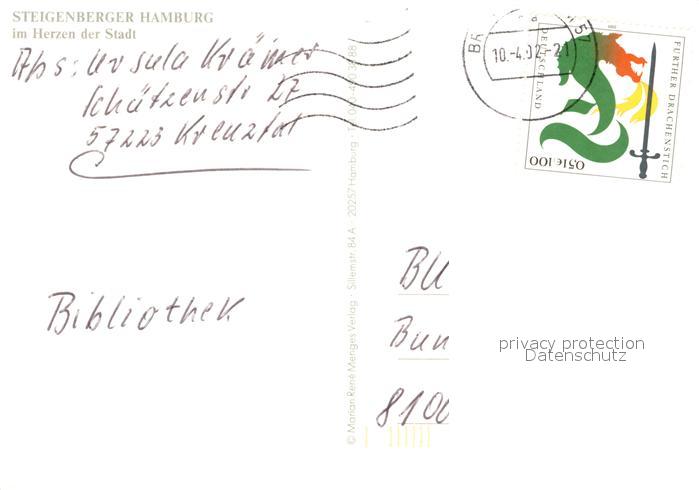 STEIGENBERGER HAMBURG
im Herzen der Stadt
Abs: Ursula Krämer
Schützenstr 27
57223 Kreuztal
Bibliothek
© Marian René Menges Verlag · Sillemstr. 84 A · 20257 Hamburg · Tel. 040-490 38 88
BR
57
10.-4.02-21
DEUTSCHLAND
FURTHER DRACHENSTICH
0,51€ 100
BU
Bun
8100
privacy protection
Datenschutz